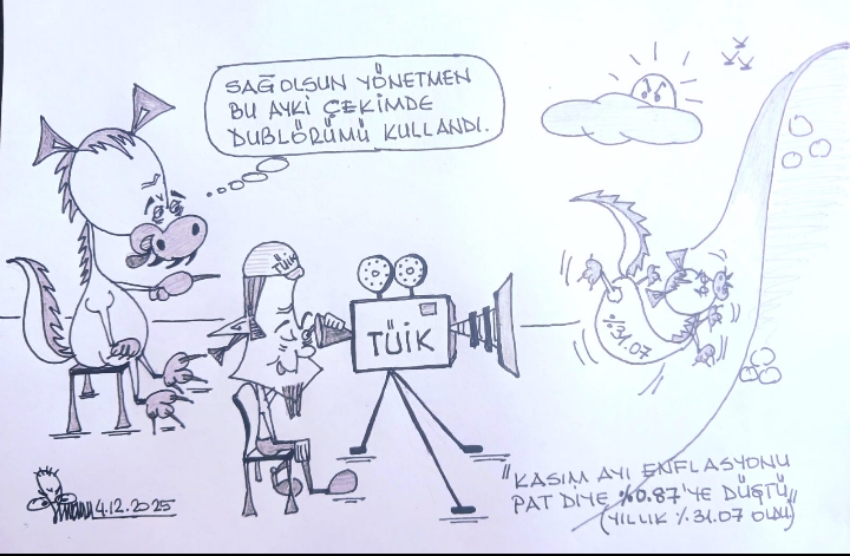 SAĞOLSUN YÖNETMEN
BU AYKİ ÇEKİMDE
DUBLÖRÜMÜ KULLANDI.
TÜİK
TÜİK
%31.07
"KASIM AYI ENFLASYONU
PAT DİYE %0.87'YE DÜŞTÜ"
(YILLIK %31.07 OLDU)
4.12.2025